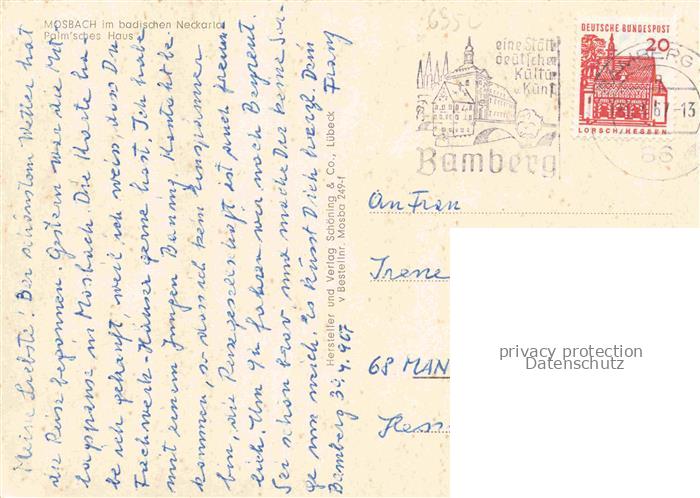 MOSBACH im badischen Neckartal
Palm'sches Haus
Meine Liebste! Bei schönstem Wetter hat
die Reise begonnen. Gestern war die Mit-
tagspause in Mosbach. Die Karte ha-
be ich gekauft, weil ich weiss, dass Du
Fachwerk-Häuser gerne hast. Ich habe
mit einem jungen Kontakt be-
kommen, so dass ich kein Einspänner
bin, die Reisegesellschaft ist auch freund-
lich. Um 9h fahren wir nach Bayreut.
Sei schön brav und mache Dir keine Sor-
ge um mich. Es küsst Dich herzl. Dein
Bamberg 30.4.967 Franz
Hersteller und Verlag Schöning & Co., Lübeck
v Bestellnr. Mosba 249-f
695C
eine Stätte
deutscher
Kultur
u. Kunst
Bamberg
DEUTSCHE BUNDESPOST
20
LORSCH/HESSEN
BAMBERG
67-13
86
An Frau
Irene
68 MAN
privacy protection
Datenschutz